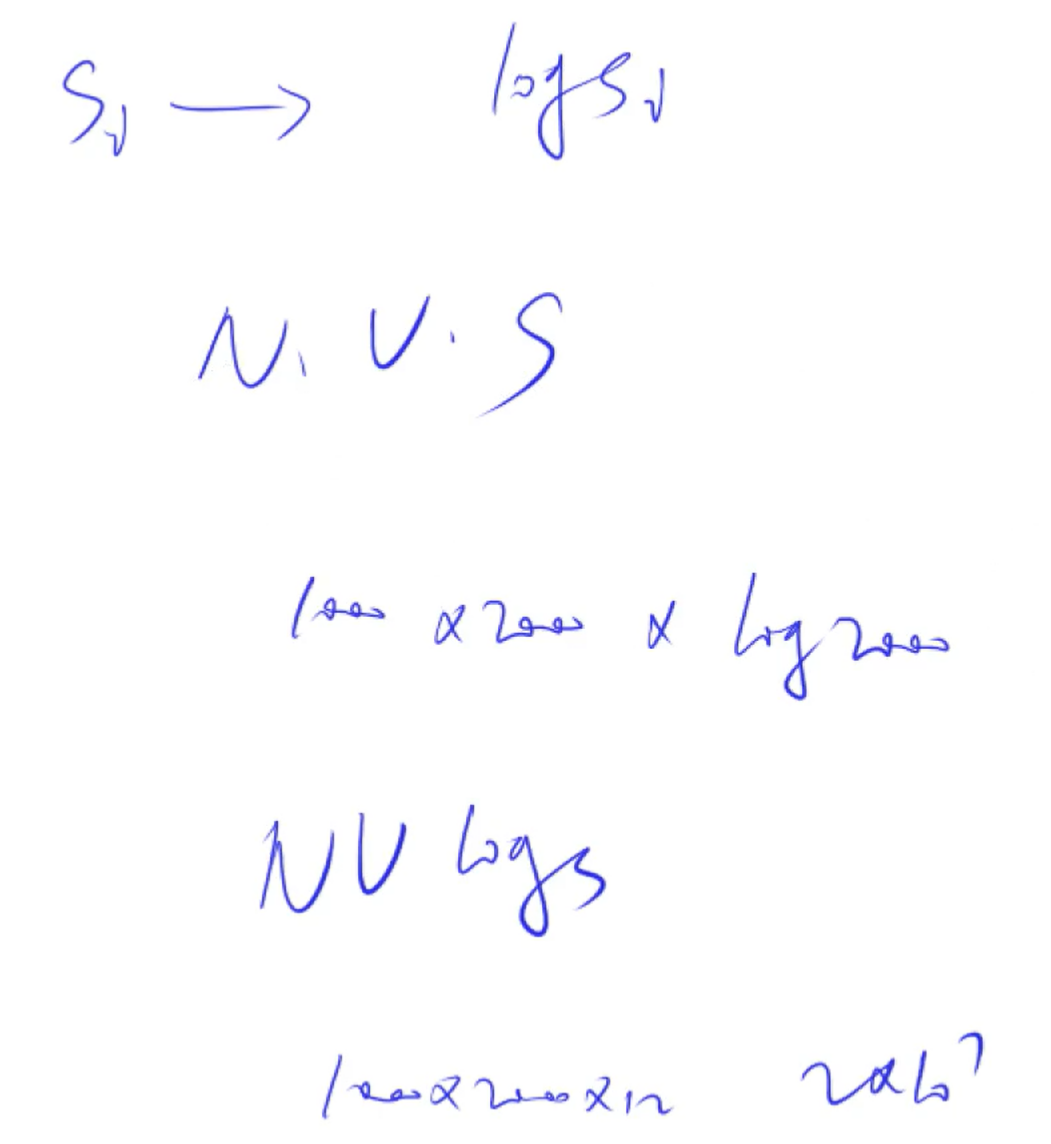 Si → log Si
N. V. S
1000 × 2000 × log 2000
NV log S
1000 × 2000 × 12 2 × 10⁷